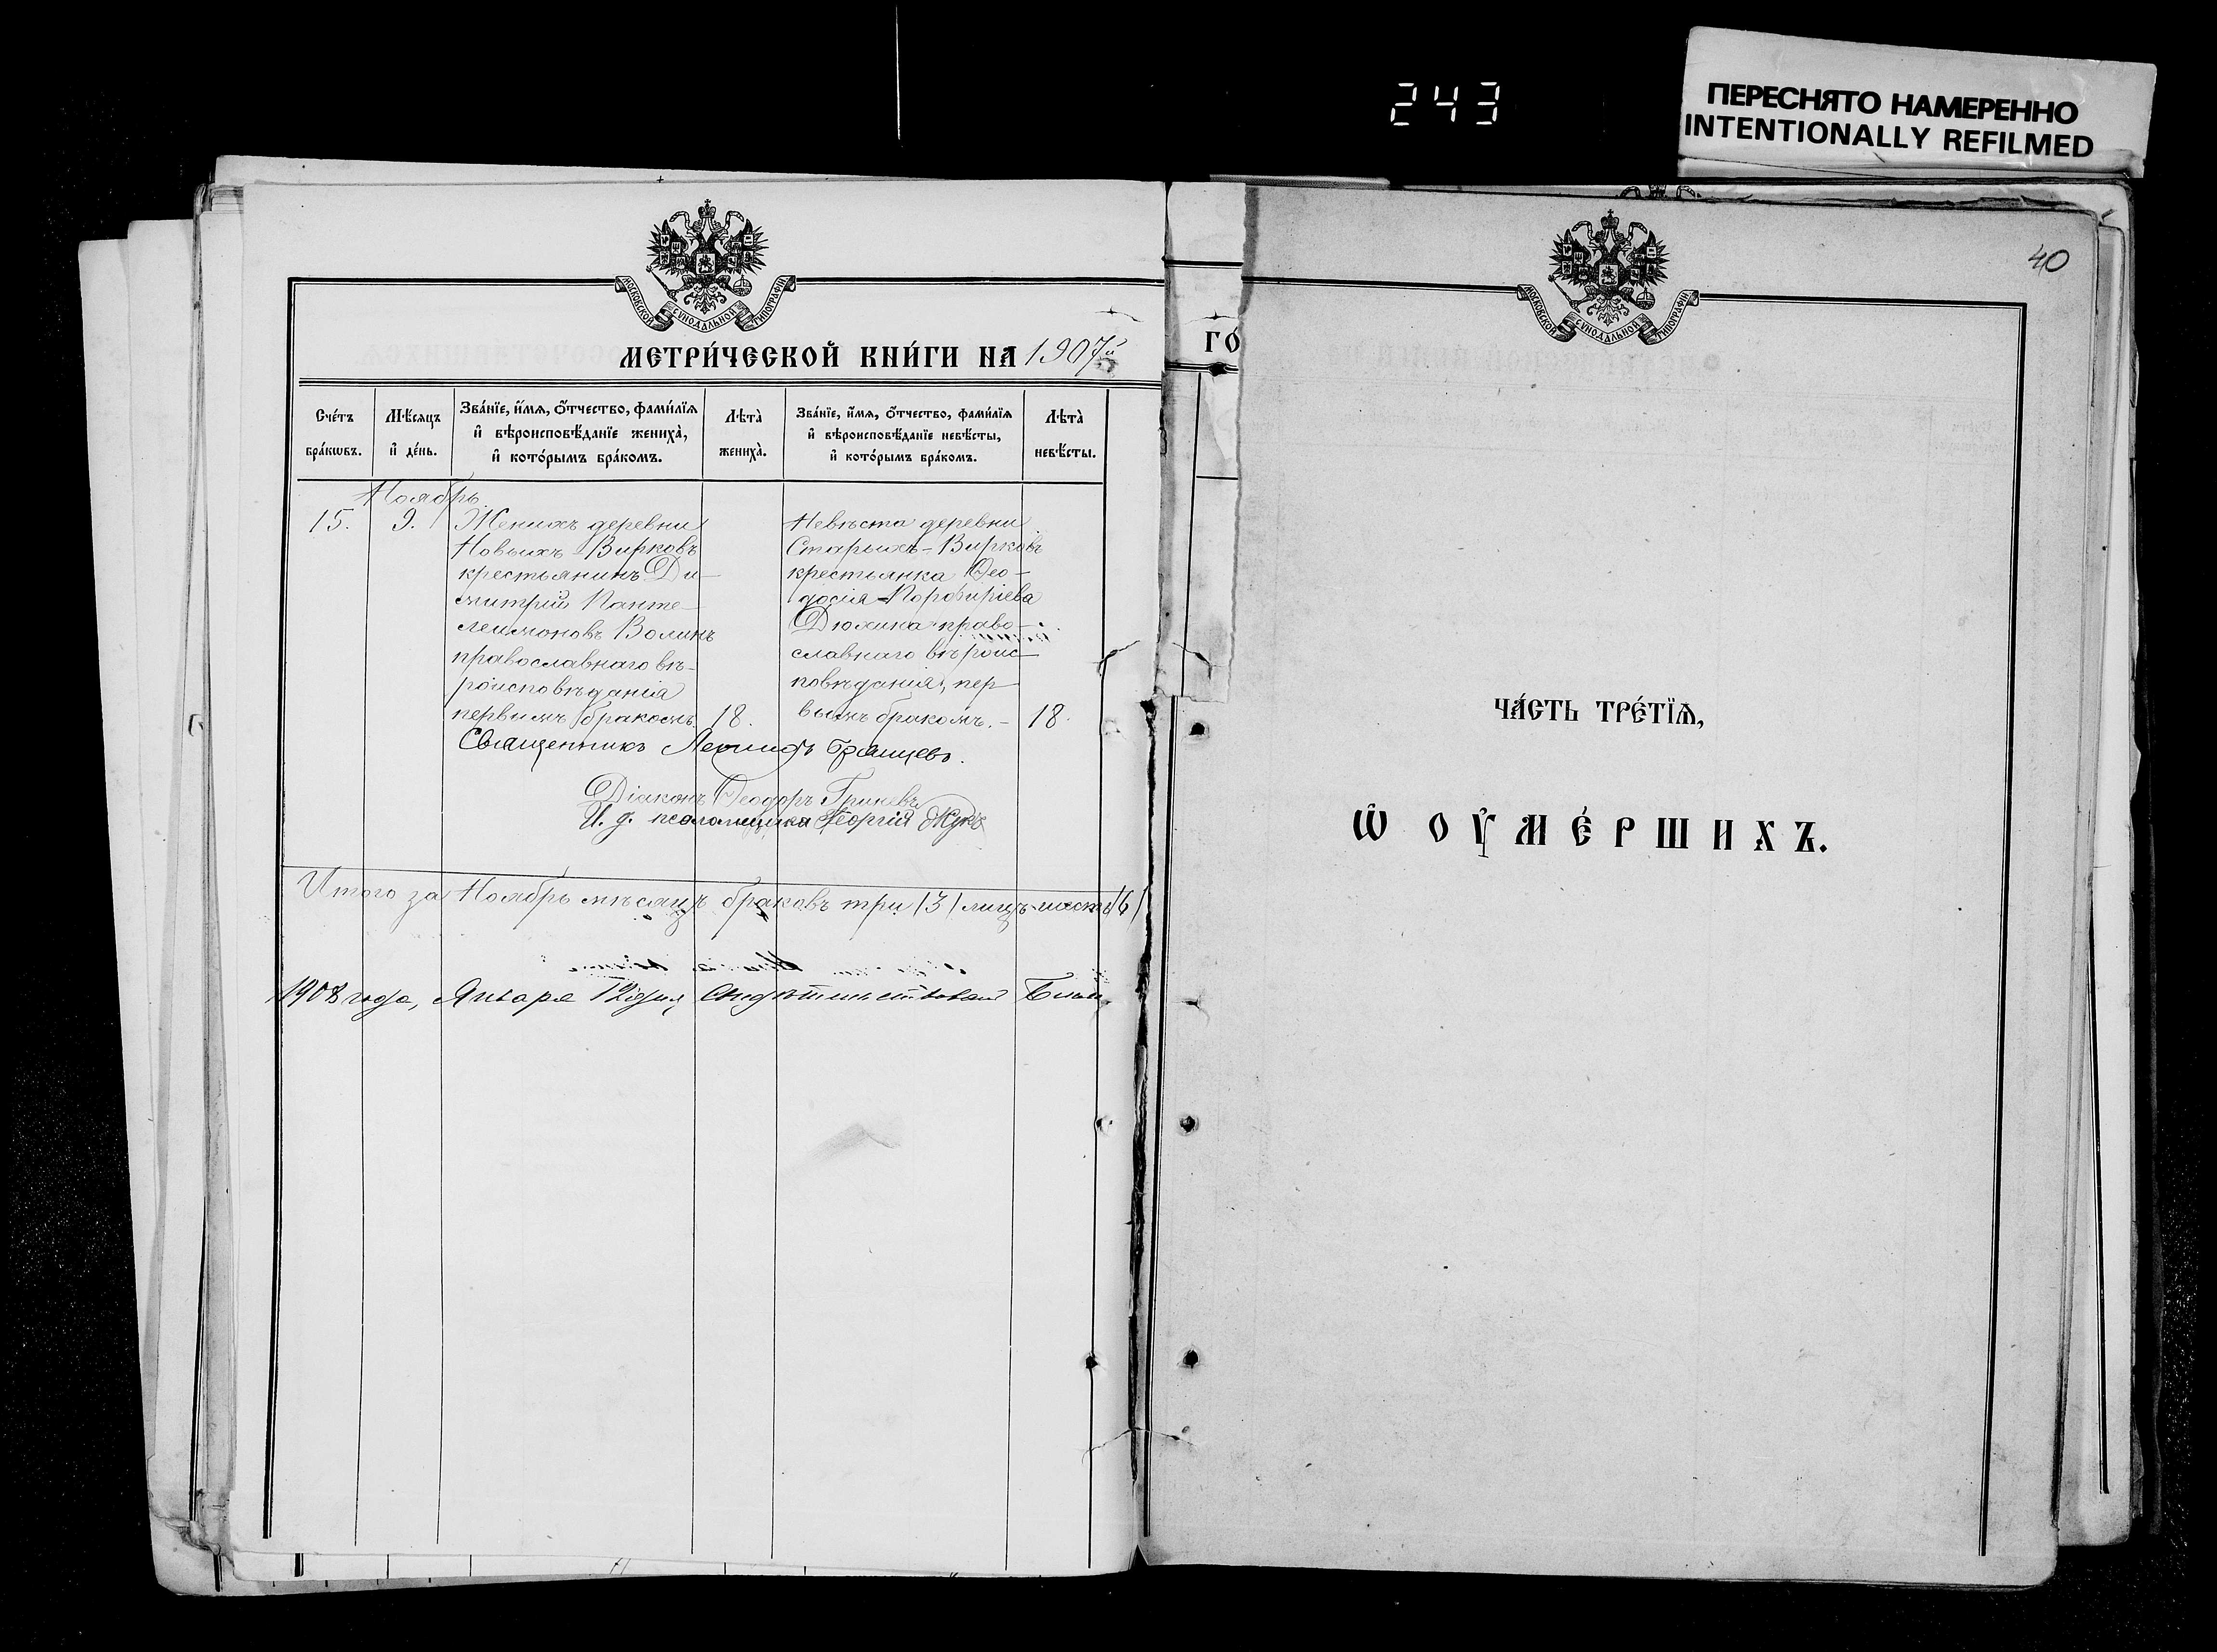 243
ПЕРЕСНЯТО НАМЕРЕННО
INTENTIONALLY REFILMED
МОСКОВСКОЙ СѴНОДАЛЬНОЙ ТИПОГРАФІИ
МЕТРИ́ЧЕСКОЙ КНИ́ГИ НА 1907й
Сче́тъ бра́кѡвъ.
Мѣ́сяцъ и҆ де́нь.
Зва́нїе, и҆́мя, ѻ҆́тчество, фами́лїя и҆ вѣроисповѣ́данїе жениха̀, и҆ кото́рымъ бра́комъ.
Лѣта̀ жениха̀.
Зва́нїе, и҆́мя, ѻ҆́тчество, фами́лїя и҆ вѣроисповѣ́данїе невѣ́сты, и҆ кото́рымъ бра́комъ.
Лѣта̀ невѣ́сты.
Ноябрь
15. 9.
Женихъ деревни
Новыхъ-Вирковъ
крестьянинъ Ди-
митрій Панте-
леимоновъ Волинъ
православнаго вѣ-
роисповѣданія
первымъ бракомъ. 18.
Невѣста деревни
Старыхъ-Вирковъ
крестьянка Ѳео-
досія Порфиріева
Дюхина право-
славнаго вѣроис-
повѣданія, пер-
вымъ бракомъ. - 18.
Священникъ Леонидъ
Діаконъ Ѳеодоръ Гриневъ
И. д. псаломщика Георгій Жукъ
Итого за Ноябрь мѣсяцъ браковъ три /3/ лицъ-шесть /6/
1908 года, Января 12 дня,
ГО
40
МОСКОВСКОЙ СѴНОДАЛЬНОЙ ТИПОГРАФІИ
ЧА́СТЬ ТРЕ́ТЇѦ,
Ѽ ОУ҆МЕ́РШИХЪ.